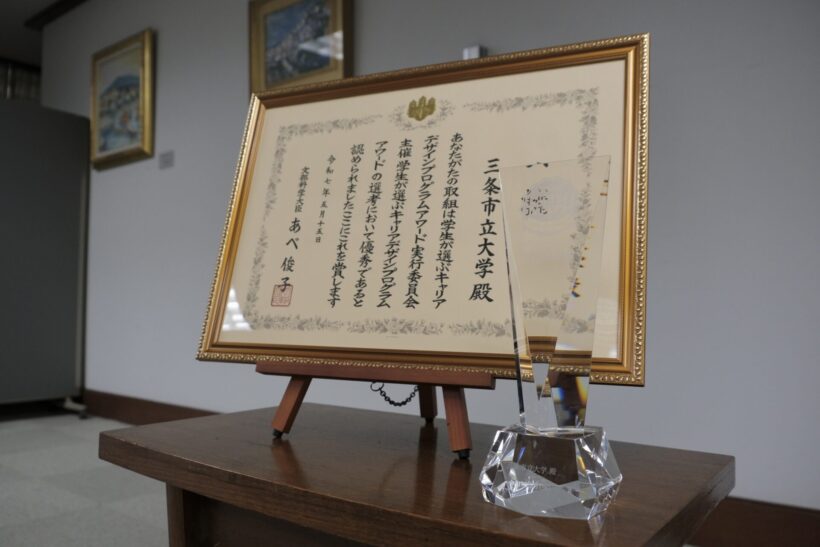 三条市立大学 殿
あなたがたの取組は学生が選ぶキャリア
デザインプログラムアワード実行委員会
主催学生が選ぶキャリアデザインプログラム
アワードの選考において優秀であると
認められましたここにこれを賞します
令和七年五月十五日
文部科学大臣 あべ 俊子
市立大学 殿